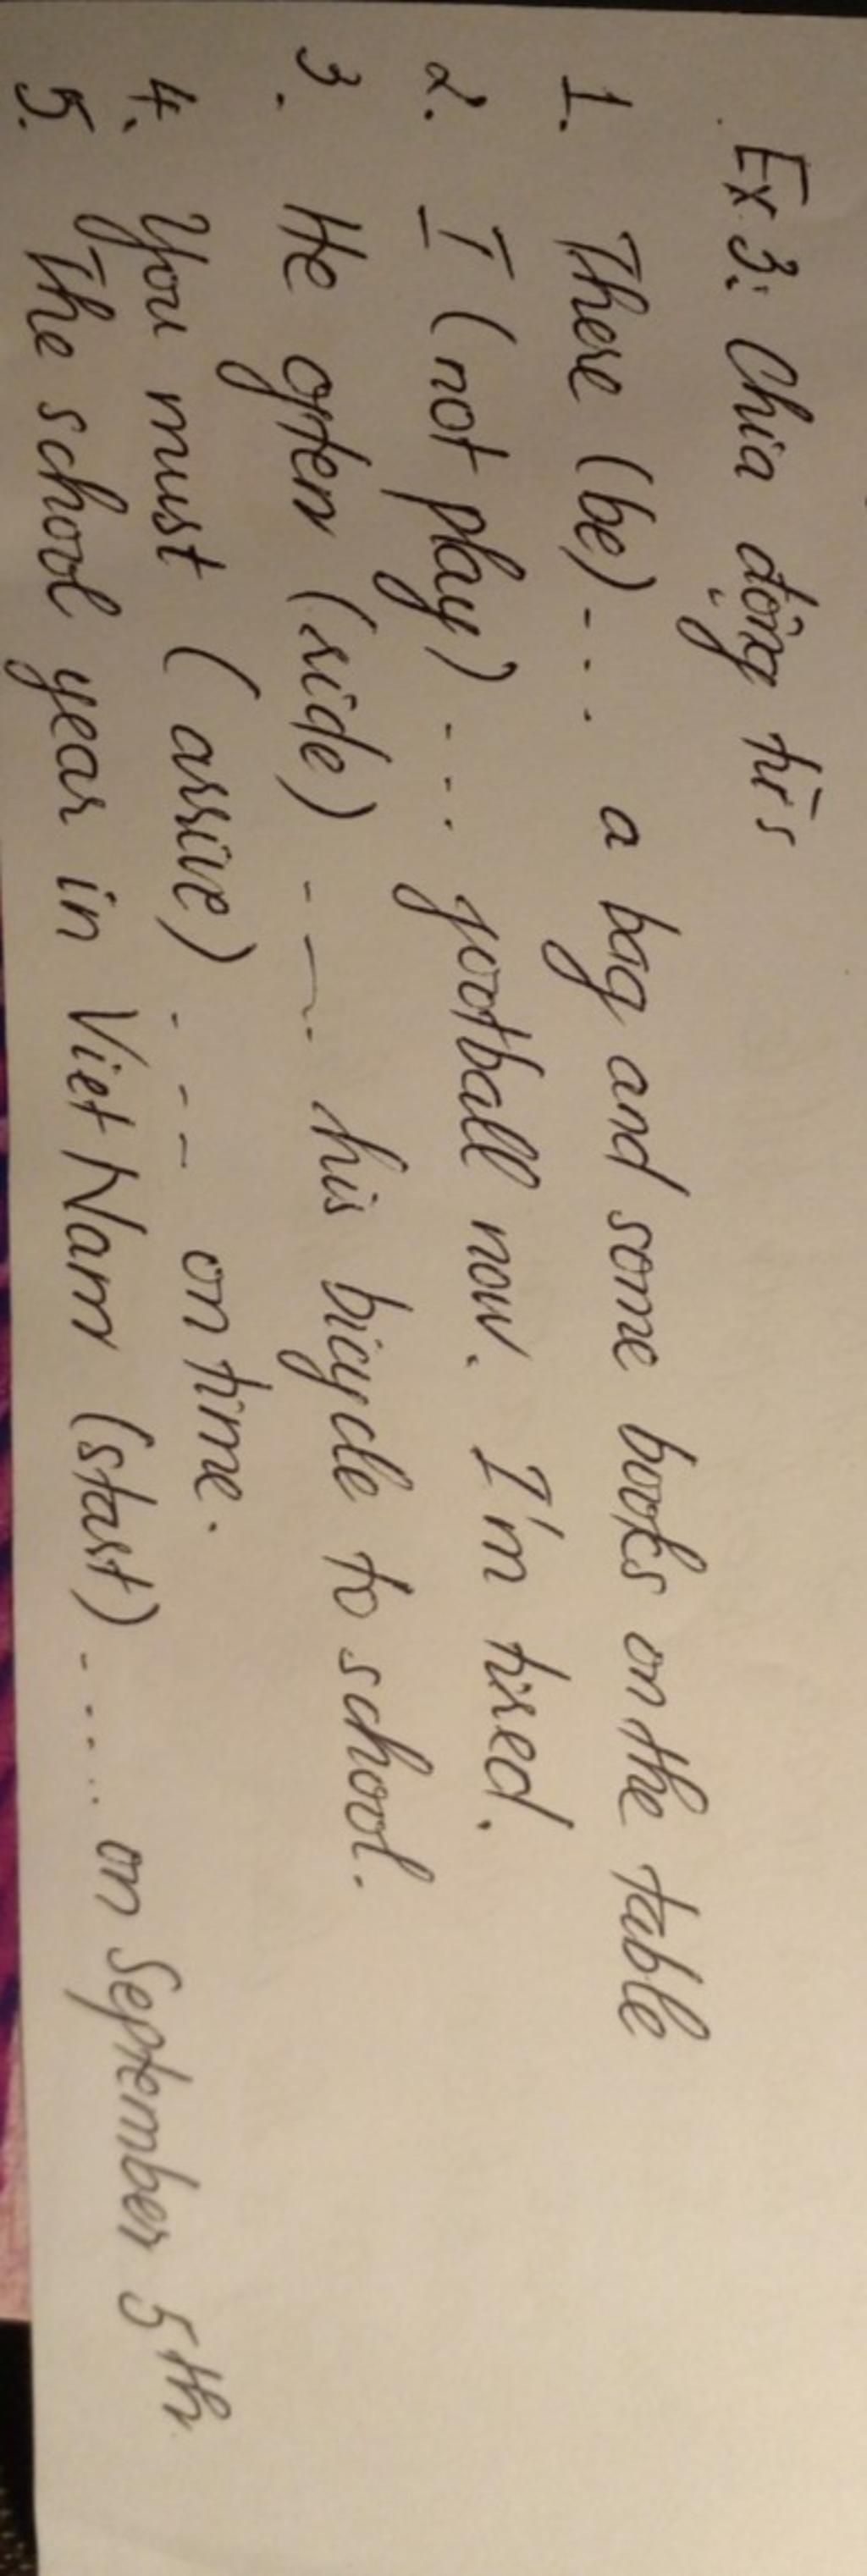 Ex 3: Chia động từ
1. There (be) ... a bag and some books on the table
2. I (not play) ... football now. I'm tired.
3. He often (ride) ... his bicycle to school.
4. You must (arrive) ... on time.
5. The school year in Viet Nam (start) ..... on September 5th